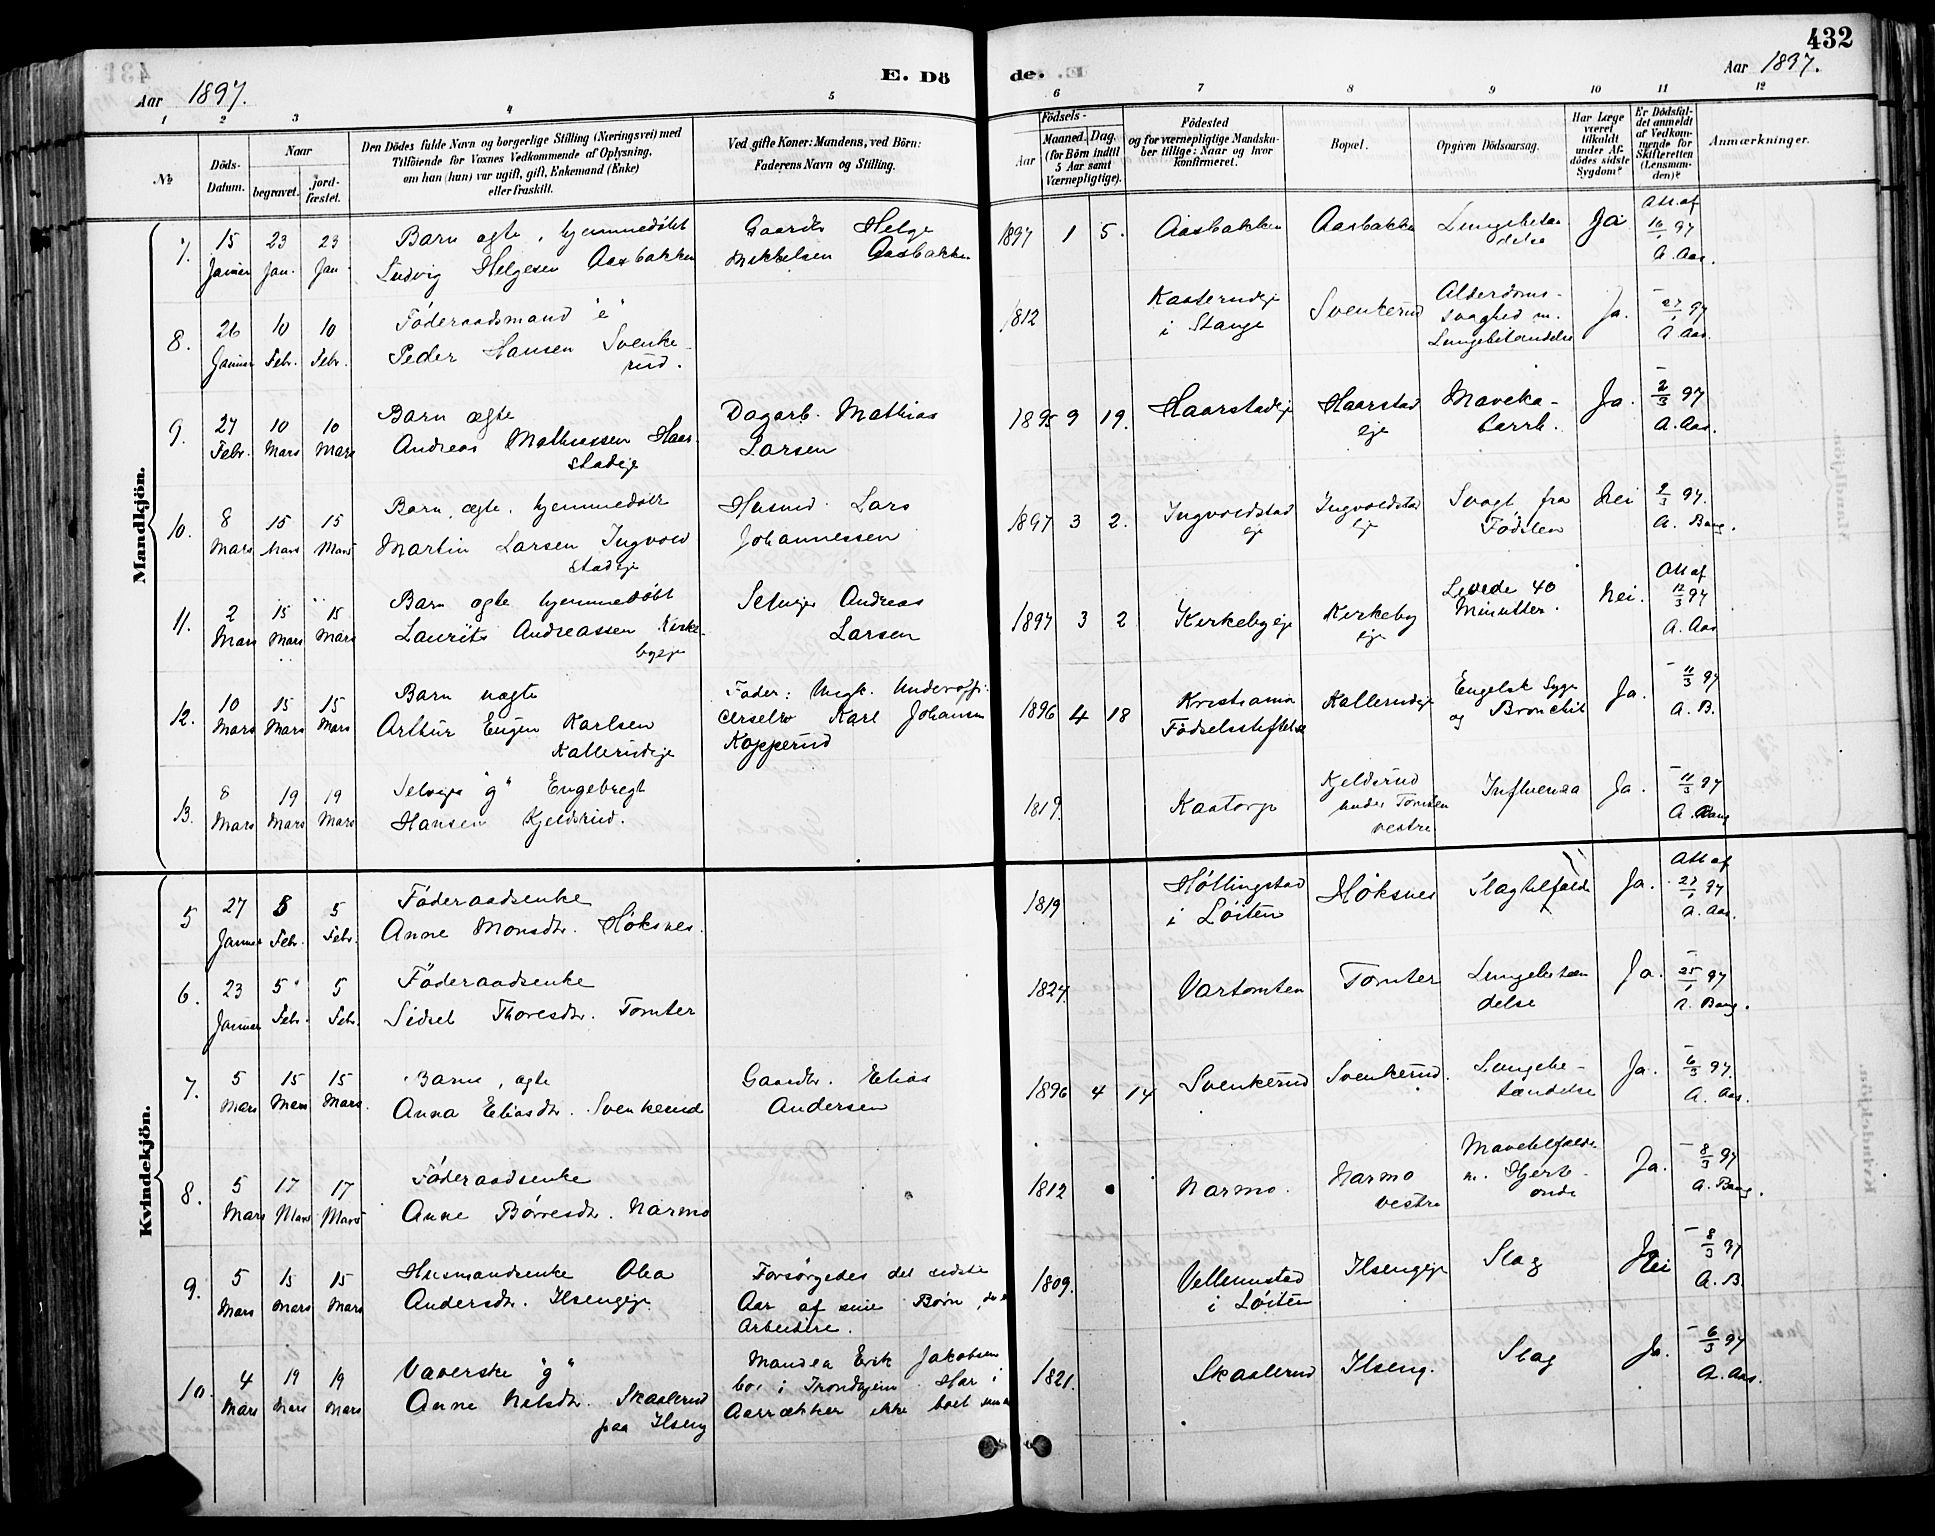 432
Aar 1897.
E. Dö
de.
Aar 1897.
1 2 3 4 5
6 7 8 9 10 11 12
№
Döds-
Datum.
Naar
begravet.
jord-
fæstet.
Den Dödes fulde Navn og borgerlige Stilling (Næringsvei) med
Tilföiende for Voxnes Vedkommende af Oplysning,
om han (hun) var ugift, gift, Enkemand (Enke)
eller fraskilt.
Ved gifte Koner: Mandens, ved Börn:
Faderens Navn og Stilling.
Födsels-
Aar
Maaned.
Dag.
(for Börn indtil
5 Aar samt
Værnepligtige).
Födested
og for værnepligtige Mandska-
ber tillige: Naar og hvor
konfirmeret.
Bopæl.
Opgiven Dödsaarsag.
Har Læge
været
tilkaldt
under Af-
dödes sidste
Sygdom?
Er Dödsfal-
det anmeldt
af Vedkom-
mende for
Skifteretten
(Lensman-
den)?
Anmærkninger.
Mandkjön.
7.
15
Januar
23
Jan.
23
Jan.
Barn ægte, hjemmedøbt
Ludvig Helgesen Aasbakken
Gaardbr Helge
Mikkelsen Aasbakken
1897 1 5.
Aasbakken
Aasbakken
Lungebetæn
delse
Ja
Att af
97
A. Aas.
8.
26
Januar
10
Febr.
10
Febr.
Föderaadsmand "e"
Peder Hansen Svenke-
rud.
1812
i Stange
Svenkerud
Alderdoms-
svaghed m.
Lungebetændelse
Ja.
27/1 97
A. Aas.
9.
27
Febr.
10
Mars
10
Mars
Barn ægte
Andreas Mathiassen Haar-
stadeje
Dagarb. Mathias
Larsen
1895 9 19.
Haarstadeje
Haarstad
eje
Maveka-
tarrh.
Ja.
2/3 97
A. Aas.
10.
8
Mars
15
Mars
15
Mars
Barn, ægte, hjemmedøbt
Martin Larsen Ingvold
stadeje
Husmd. Lars
Johannessen
1897 3 2.
Ingvoldstad
eje
Ingvoldstad
eje
Svagt fra
Fødslen
Nei
9/3 97.
A. Bang.
11.
2
Mars
15
Mars
15
Mars
Barn ægte hjemmedøbt
Laurits Andreassen Kirke-
byeje
Selvejer Andreas
Larsen
1897 3 2
Kirkebyeje
Kirkeby
eje
Levede 40
Minutter.
Nei.
Att af
12/3 97
A. Aas
12.
10
Mars
15
Mars
15
Mars
Barn uægte
Arthur Eugen Karlsen
Kallerudeje
Fader: Ungk. Underoffi-
cerselev Karl Johansen
Kopperud
1896 4 18
Kristiania
Fødselsstiftelse
Kallerudeje
Engelsk Syge
og Bronchit
Ja.
11/3 97
A. B.
13.
8
Mars
19
Mars
19
Mars
Selvejer "g" Engebregt
Hansen Kjeldsrud.
1819.
Kaatorp
Kjeldsrud
under Tomten
vestre
Influensa
Ja.
11/3 97
A. Bang
Kvindekjön.
5
27
Januar
5
Febr.
5
Febr.
Föderaadsenke
Anne Monsdtr. Høksnes.
1819
Høllingstad
i Løiten
Høksnes
Slagtilfælde
Ja.
Att af
27/1 97
A. Aas.
6.
23
Januar
5
Febr.
5
Febr.
Föderaadsenke
Sidsel Thoresdtr. Tomter
1824.
Vartomten
Tomter
Lungebetæn
delse
Ja.
25/1 97
A. Bang.
7.
5
Mars
15
Mars
15
Mars.
Barn, ægte
Anna Eliasdtr. Svenkerud
Gaardbr. Elias
Andersen
1896 4 14
Svenkerud
Svenkerud.
Lungebe-
tændelse
Ja.
6/3 97.
A. Aas.
8.
5
Mars
17
Mars
17
Mars
Föderaadsenke
Anne Børresdtr. Narmo
1812
Narmo.
Narmo
vestre
Mavetilfælde
m. Hjerte-
onde
Ja.
8/3 97
A. Bang.
9.
5
Mars
15
Mars
15
Mars
Husmandsenke Olea
Andersdtr. Ilsengeje.
Forsørgedes det sidste
Aar af sine Børn, der er
Arbeidere.
1809.
i Løiten
Ilsengeje
Slag
Nei
8/3 97
A. B.
10.
4
Mars
19
Mars
19
Mars
Væverske "g"
Anne Nilsdtr. Skaalerud
paa Ilseng
Manden Erik Jakobsen
bor i Trondhjem. Har i
Aarrækker ikke boet
1821.
Skaalerud
Ilseng.
Slag
Ja.
6/3 97
A. Aas.